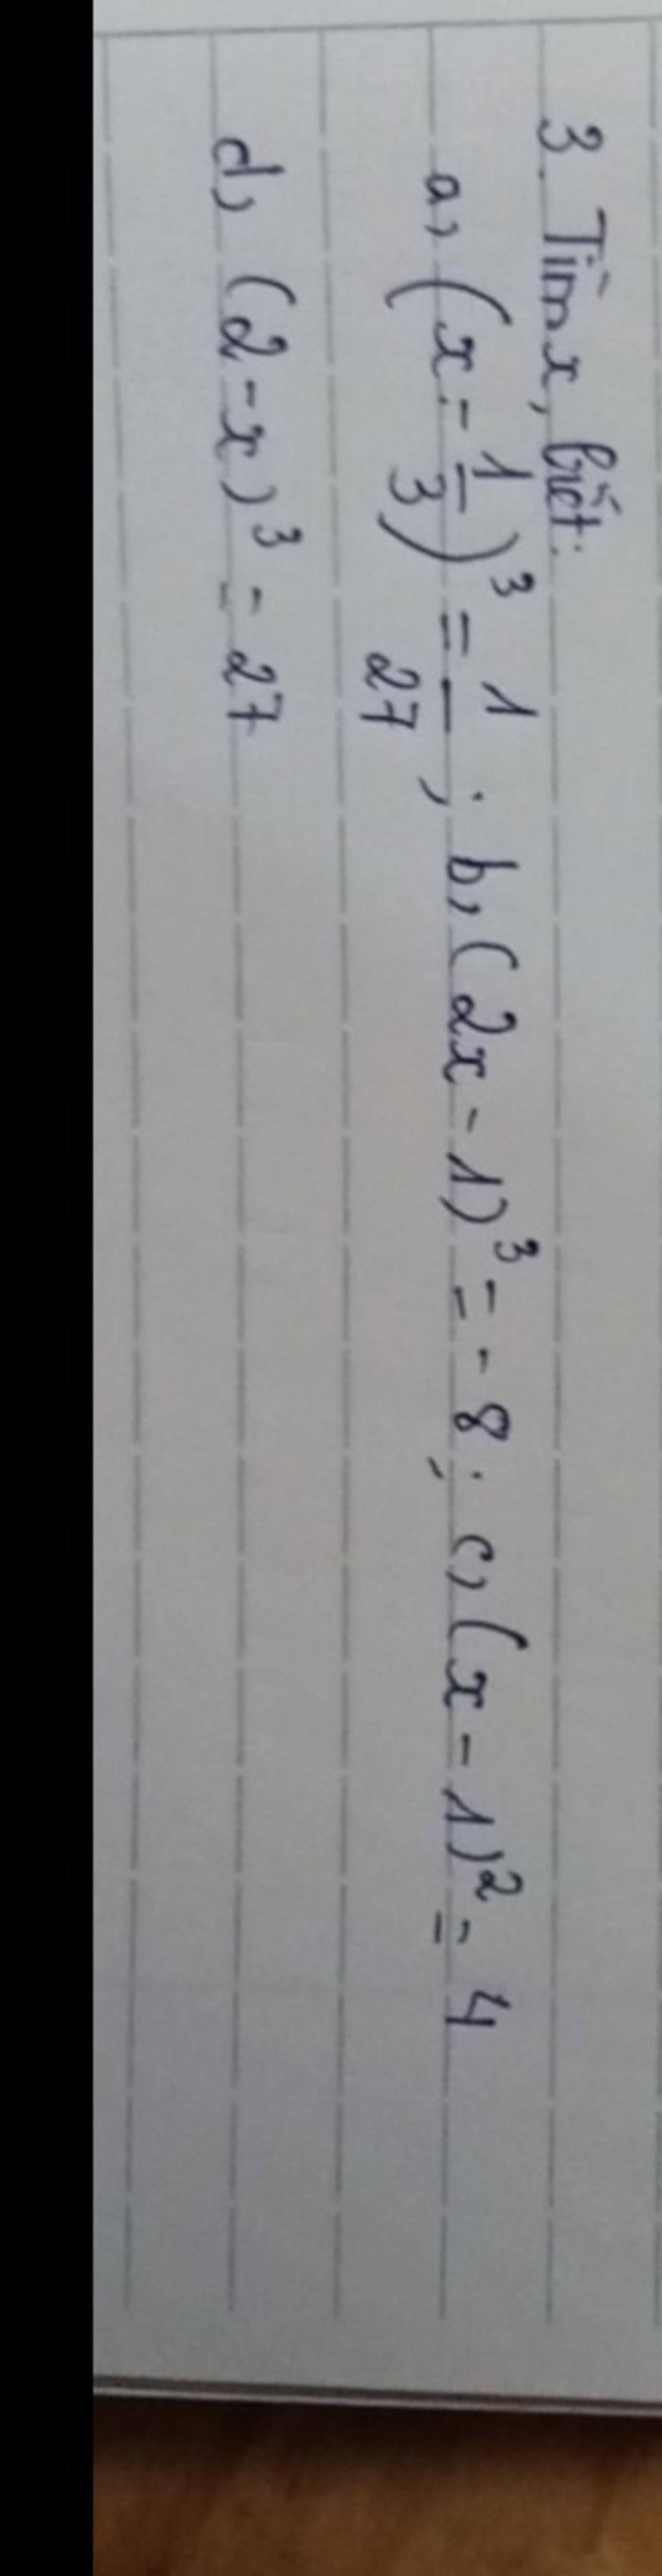 3. Tìm x, biết:
a, (x - 1/3)³ = 1/27 ; b, (2x - 1)³ = - 8 ; c, (x - 1)² = 4
d, (2 - x)³ = 27